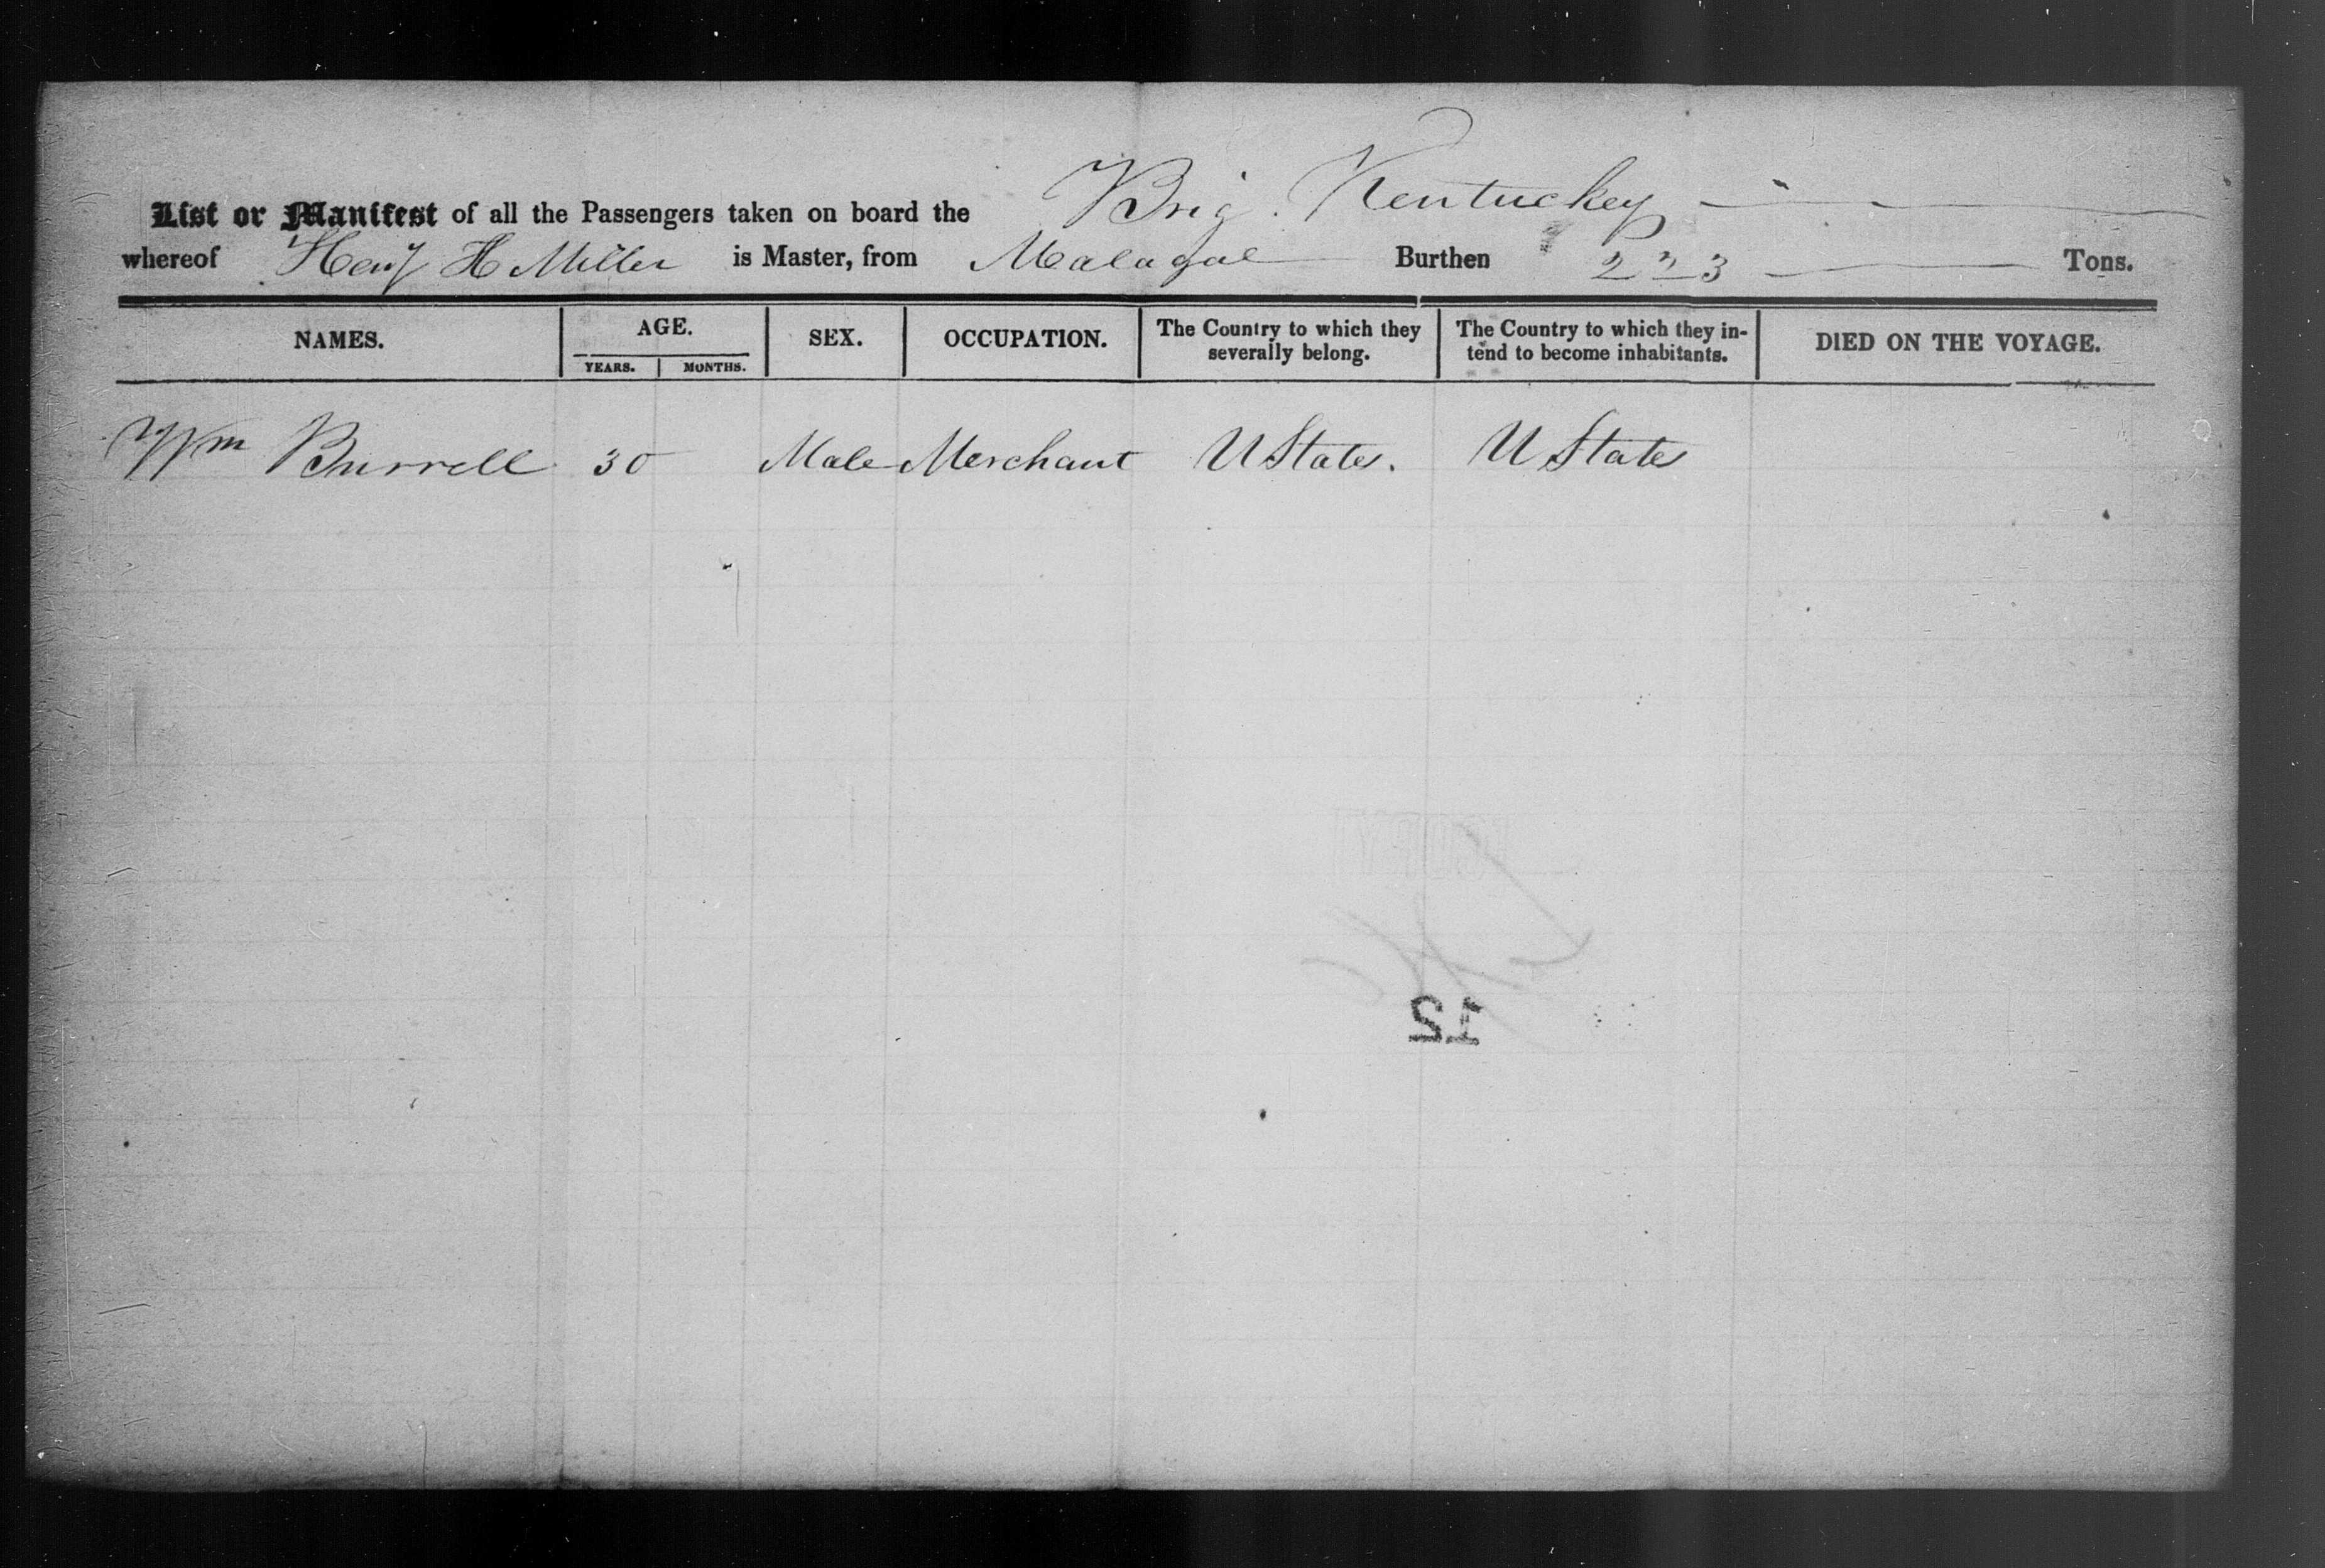 List or Manifest of all the Passengers taken on board the Brig. Kentucky
whereof H Miller is Master, from Malaga Burthen 223 Tons.
NAMES. AGE. SEX. OCCUPATION. The Country to which they severally belong. The Country to which they intend to become inhabitants. DIED ON THE VOYAGE.
YEARS. MONTHS.
Wm Burrell 30 Male Merchant U States. U States
12